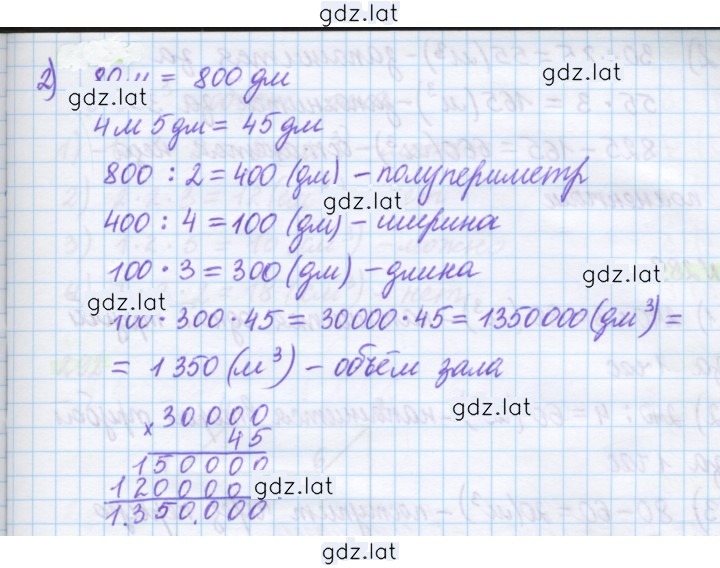 gdz.lat
2) 80 м = 800 дм
gdz.lat
gdz.lat
4м 5дм = 45 дм
800 : 2 = 400 (дм) – полупериметр
gdz.lat
400 : 4 = 100 (дм) – ширина
100 · 3 = 300 (дм) – длина
gdz.lat
gdz.lat
100 · 300 · 45 = 30000 · 45 = 1350000 (дм³) =
= 1350 (м³) – объём зала
gdz.lat
× 30000
45
150000
120000
gdz.lat
1.350.000
gdz.lat